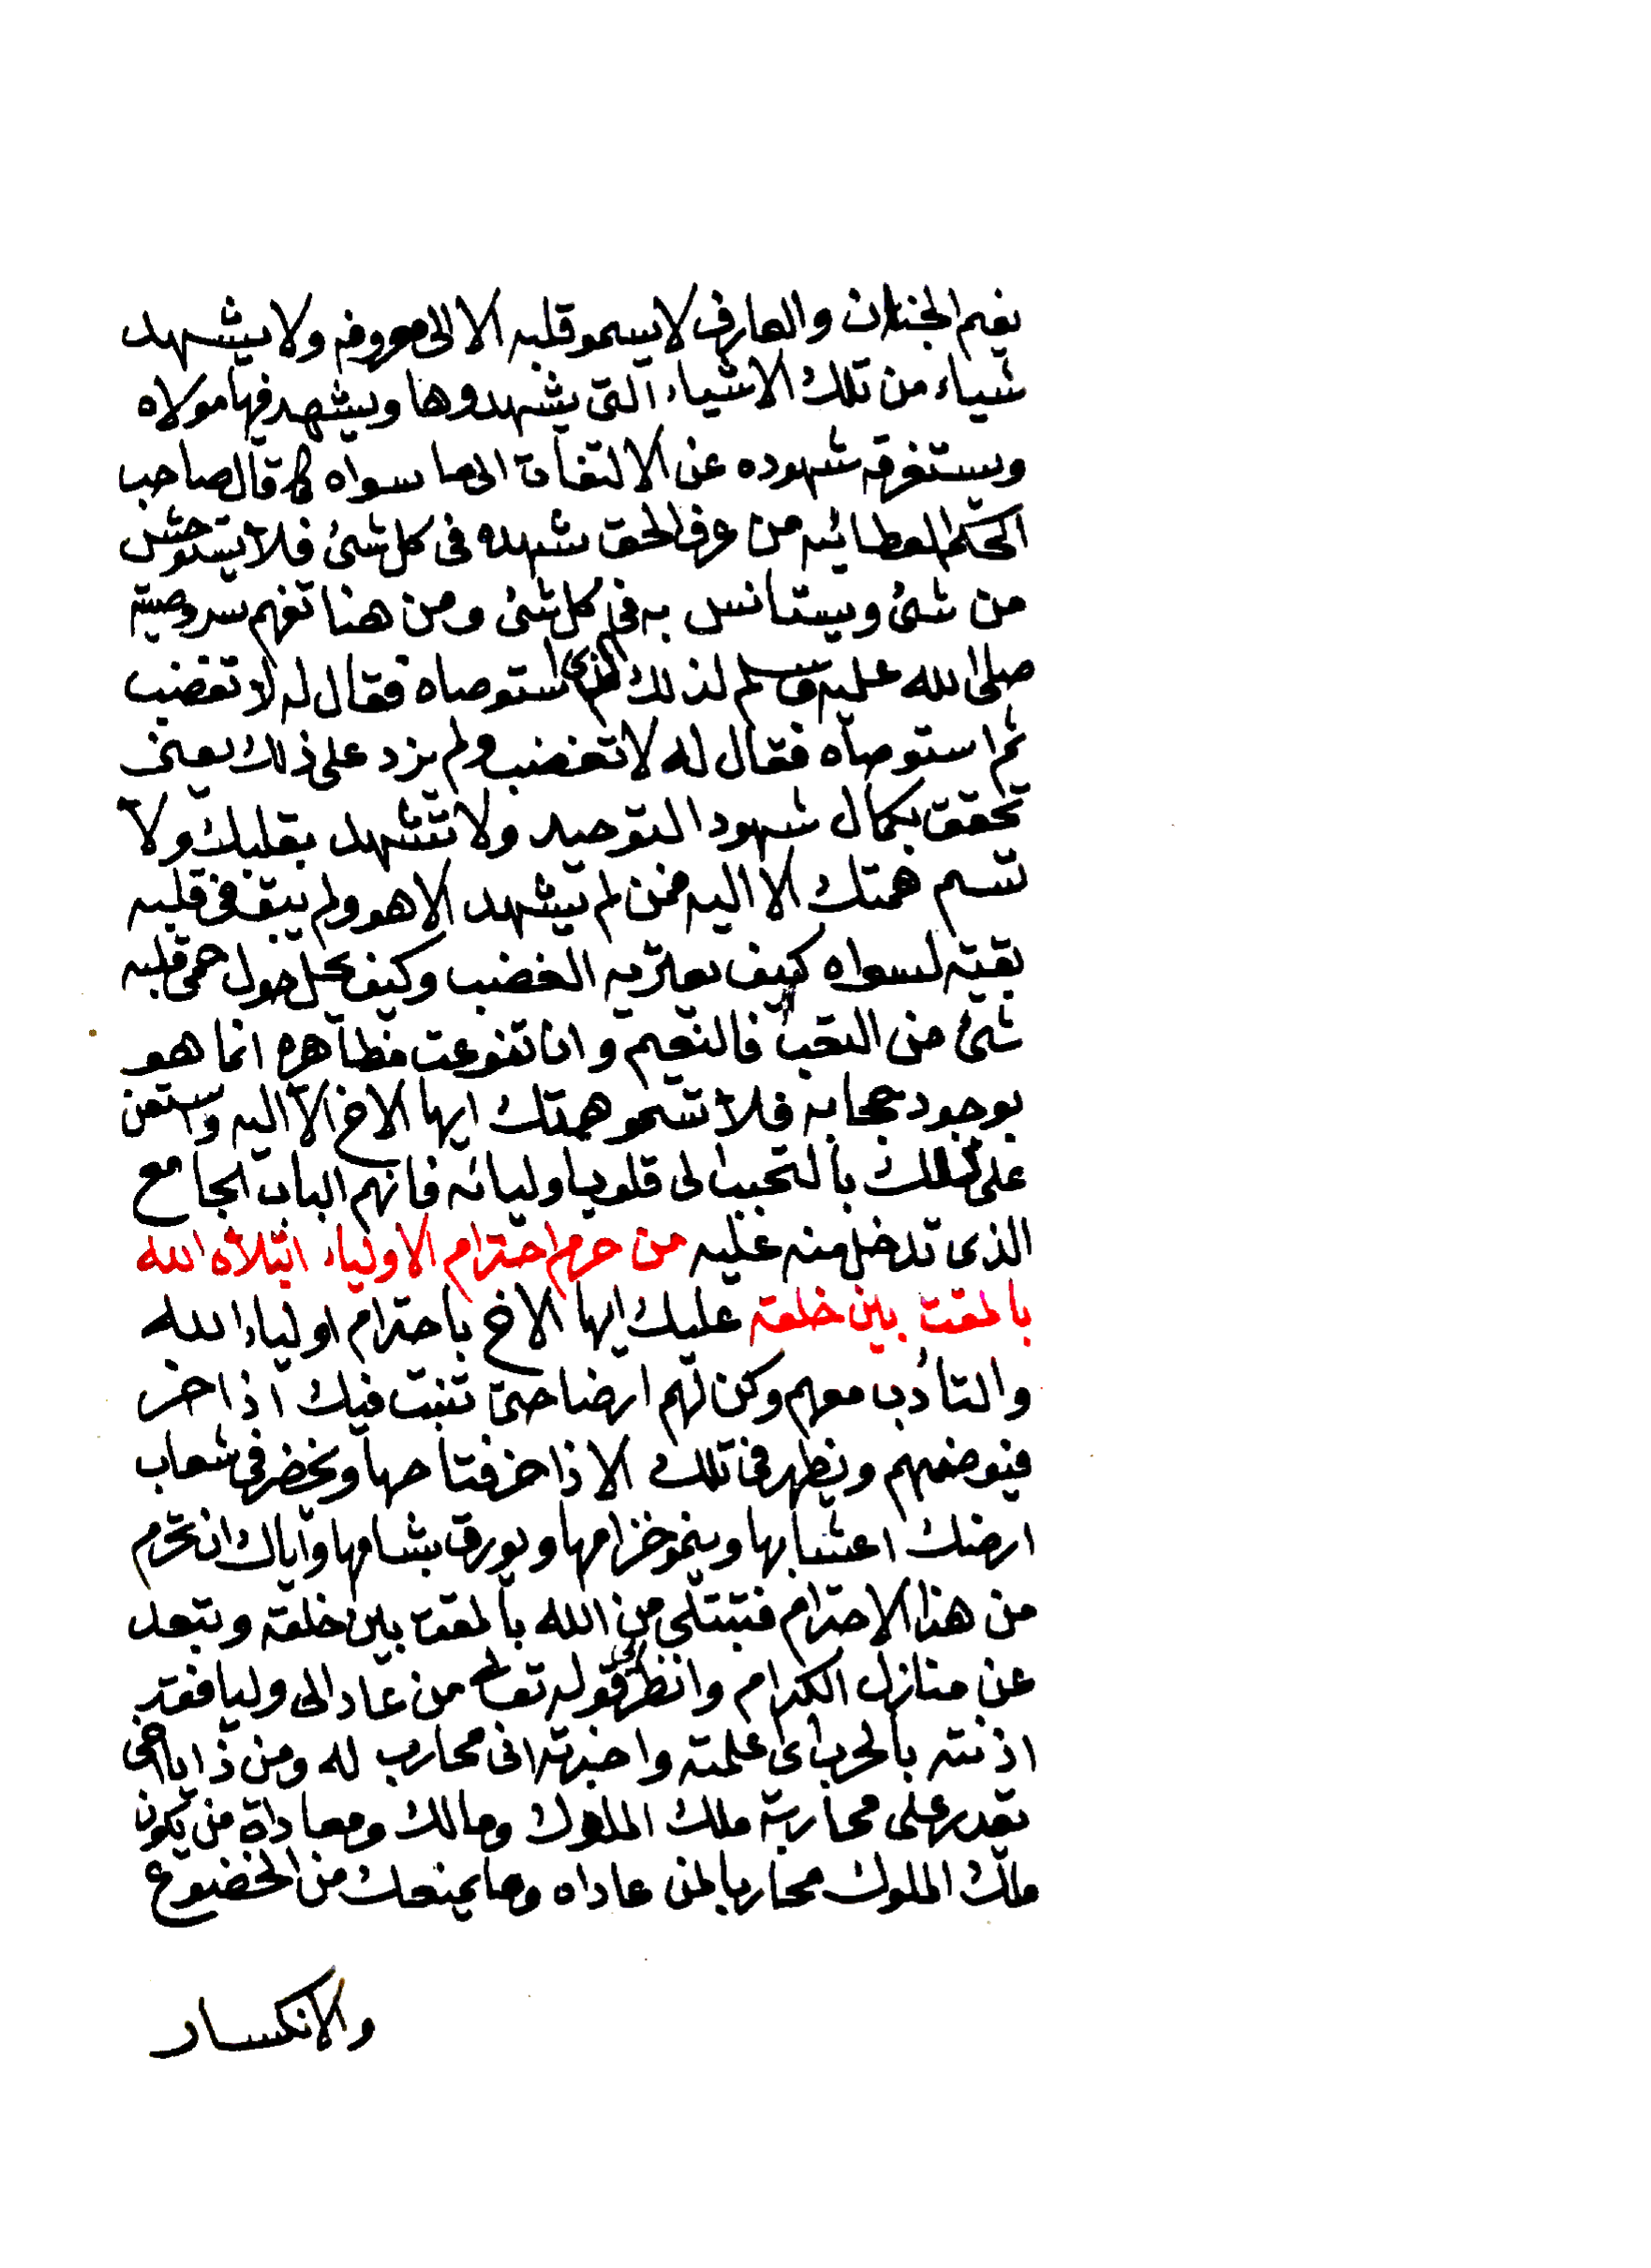 نعيم الجنان والعارف لا يسمو قلبه الا الى معروفه ولا يشهد
شياء من تلك الاشياء التى يشهدوها ويشهد فيها مولاه
ويستغرقه شهوده عن الالتفات الى ما سواه كما قال صاحب
الحكم العطائيه من عرف الحق شهده فى كل شئ فلا يستوحش
من شئ ويستانس به فى كل شئ ومن هنا تفهم سر وصيته
صلى الله عليه وسلم لذلك الذى استوصاه فقال له لا تغضب
ثم استوصاه فقال له لا تغضب ولم يزد على ذلك يعنى
تحقق بكمال شهود التوحيد ولا تشهد بقلبك ولا
تسم همتك الا اليه فمن لم يشهد الا هو ولم يبق فى قلبه
بقية لسواه كيف يعتريه الغضب وكيف يحل حول حمى قلبه
شئ من التعب فالنعيم وان تنوعت مظاهره انما هو
بوجود حجابه فلا تسمو همتك ايها الاخ الا اليه واستعن
على ذلك بالتحبب الى قلوب اوليائه فانهم الباب الجامع
الذى تدخل منه عليه من حرم احترام الاولياء ابتلاه الله
بالمقت بين خلقه عليك ايها الاخ باحترام اولياء الله
والتادب معهم وكن لهم ارضا حتى تنبت فيك اذاخر
فيوضهم ويظهر فى تلك الاذاخر فتاحها ويخضر فى شعاب
ارضك اعشابها وينمو خزامها ويورق بشامها واياك ان تحرم
من هذا الاحترام فتبتلى من الله بالمقت بين خلقه وتبعد
عن منازل الكرام وانظر الى قوله تعالى من عادا لى وليا فقد
اذنته بالحرب اى علمته واخبرته انى محارب له ومن ذا يا اخى
يقدر على محاربة ملك الملوك ومالك ومعاداة من يكون
ملك الملوك محاربا لمن عاداه وما يمنعك من الخضوع
والانكسار